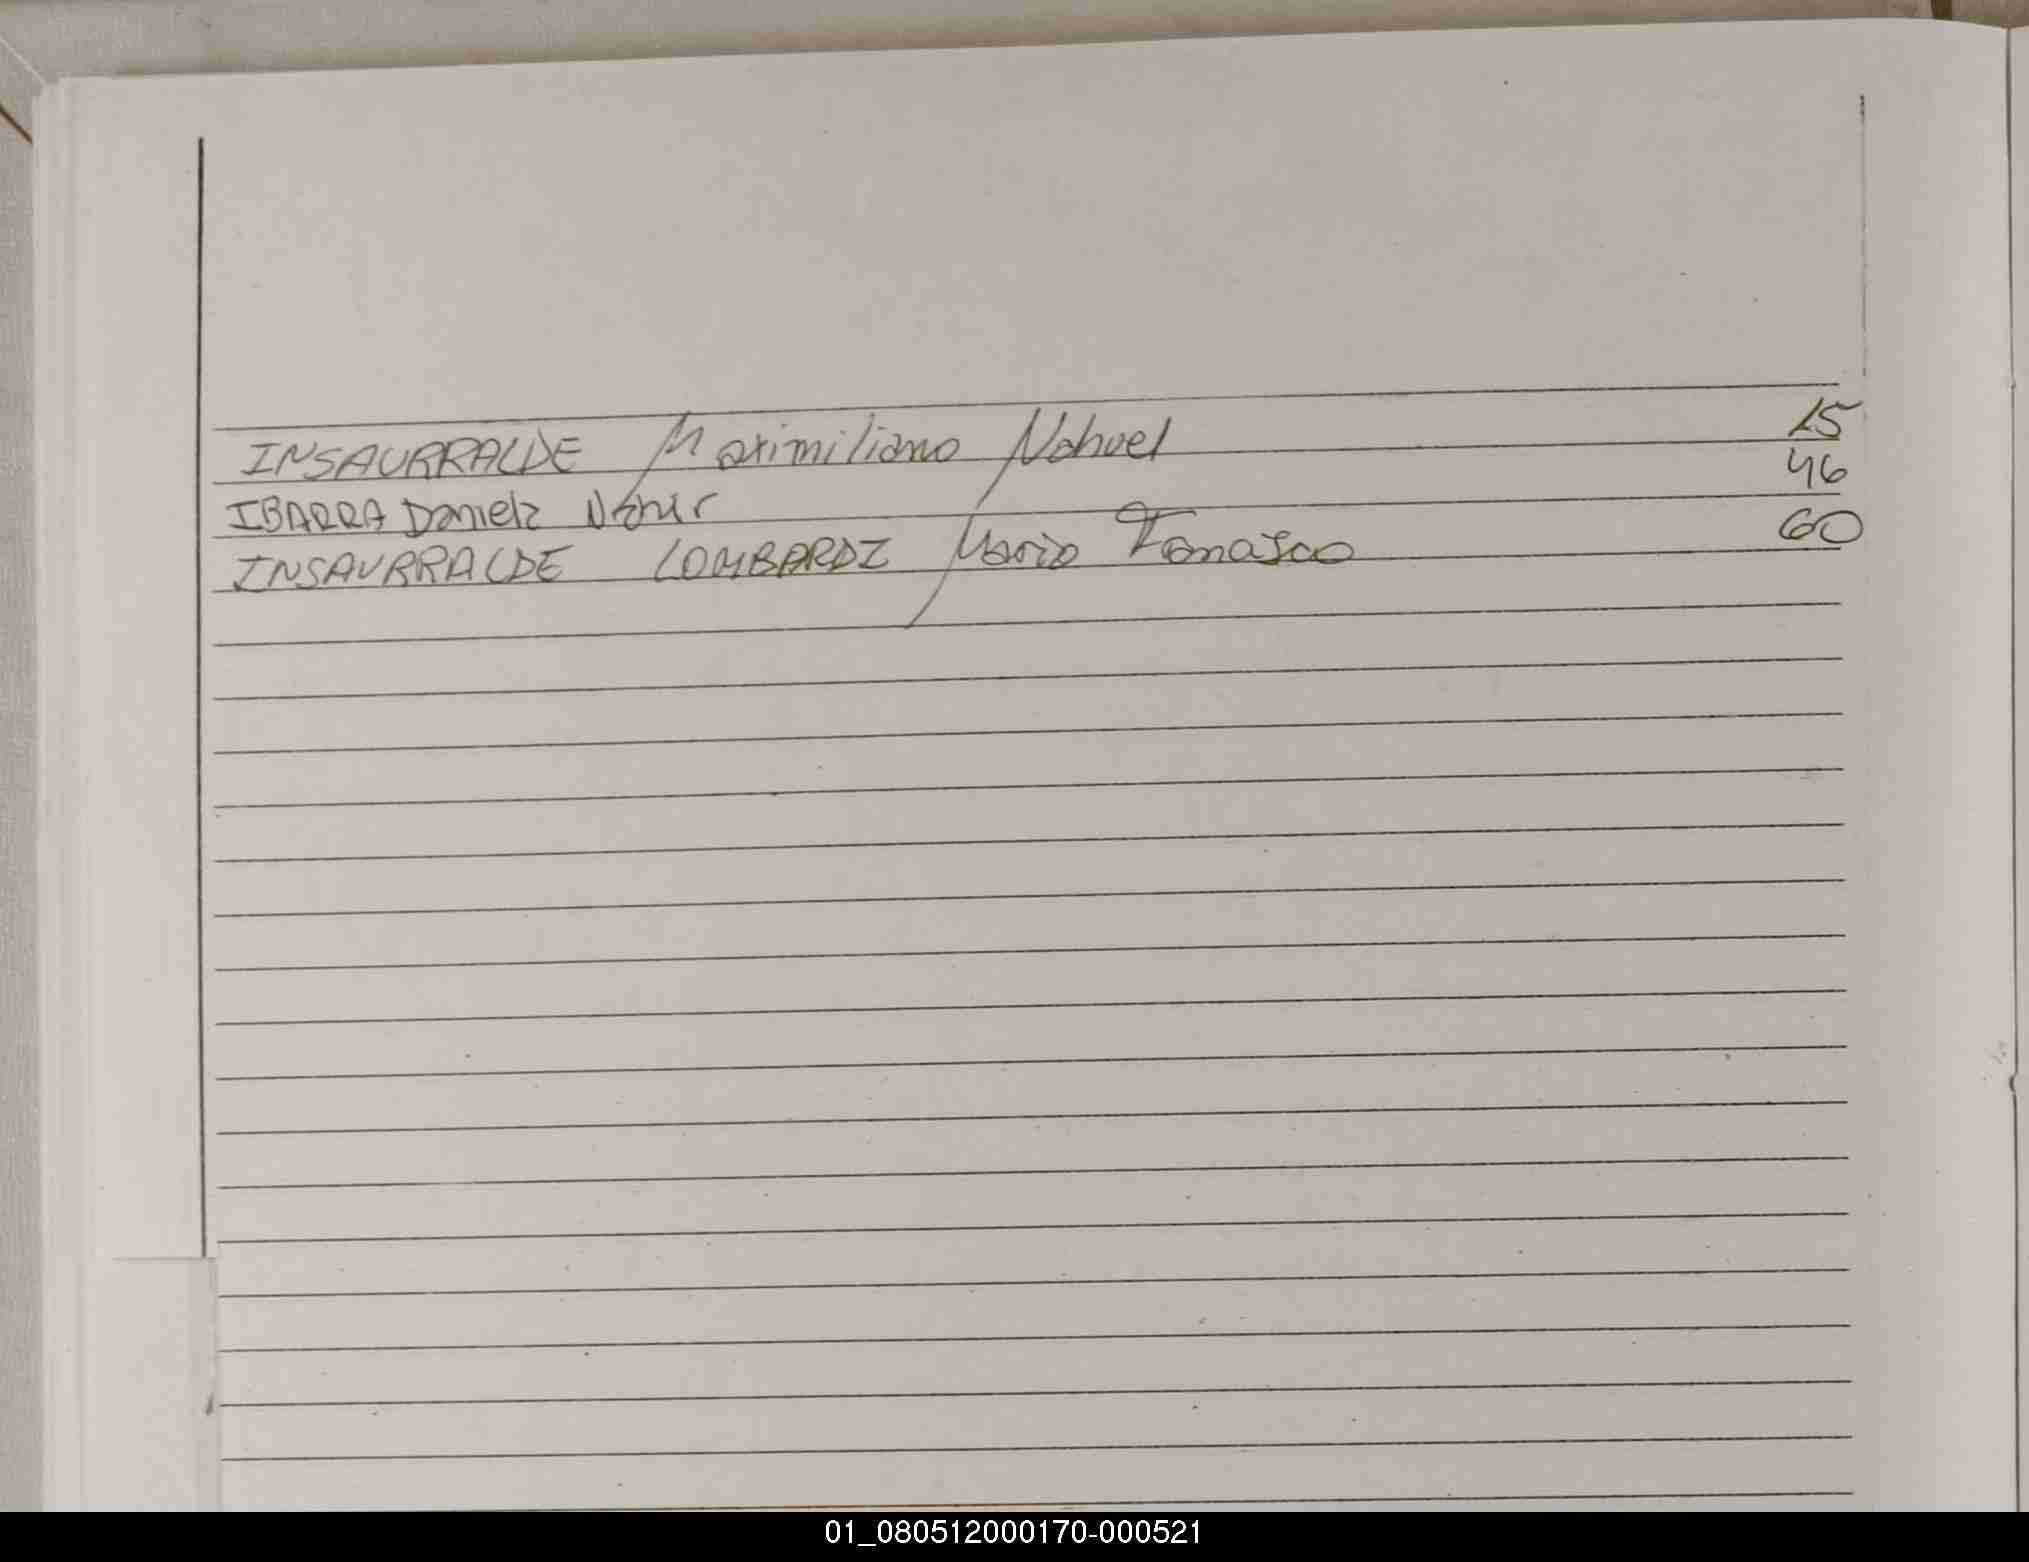 INSAURRALDE Maximiliano Nahuel 15
IBARRA Daniela Nahir 46
INSAURRALDE LOMBARDI Mario 60
01_080512000170-000521